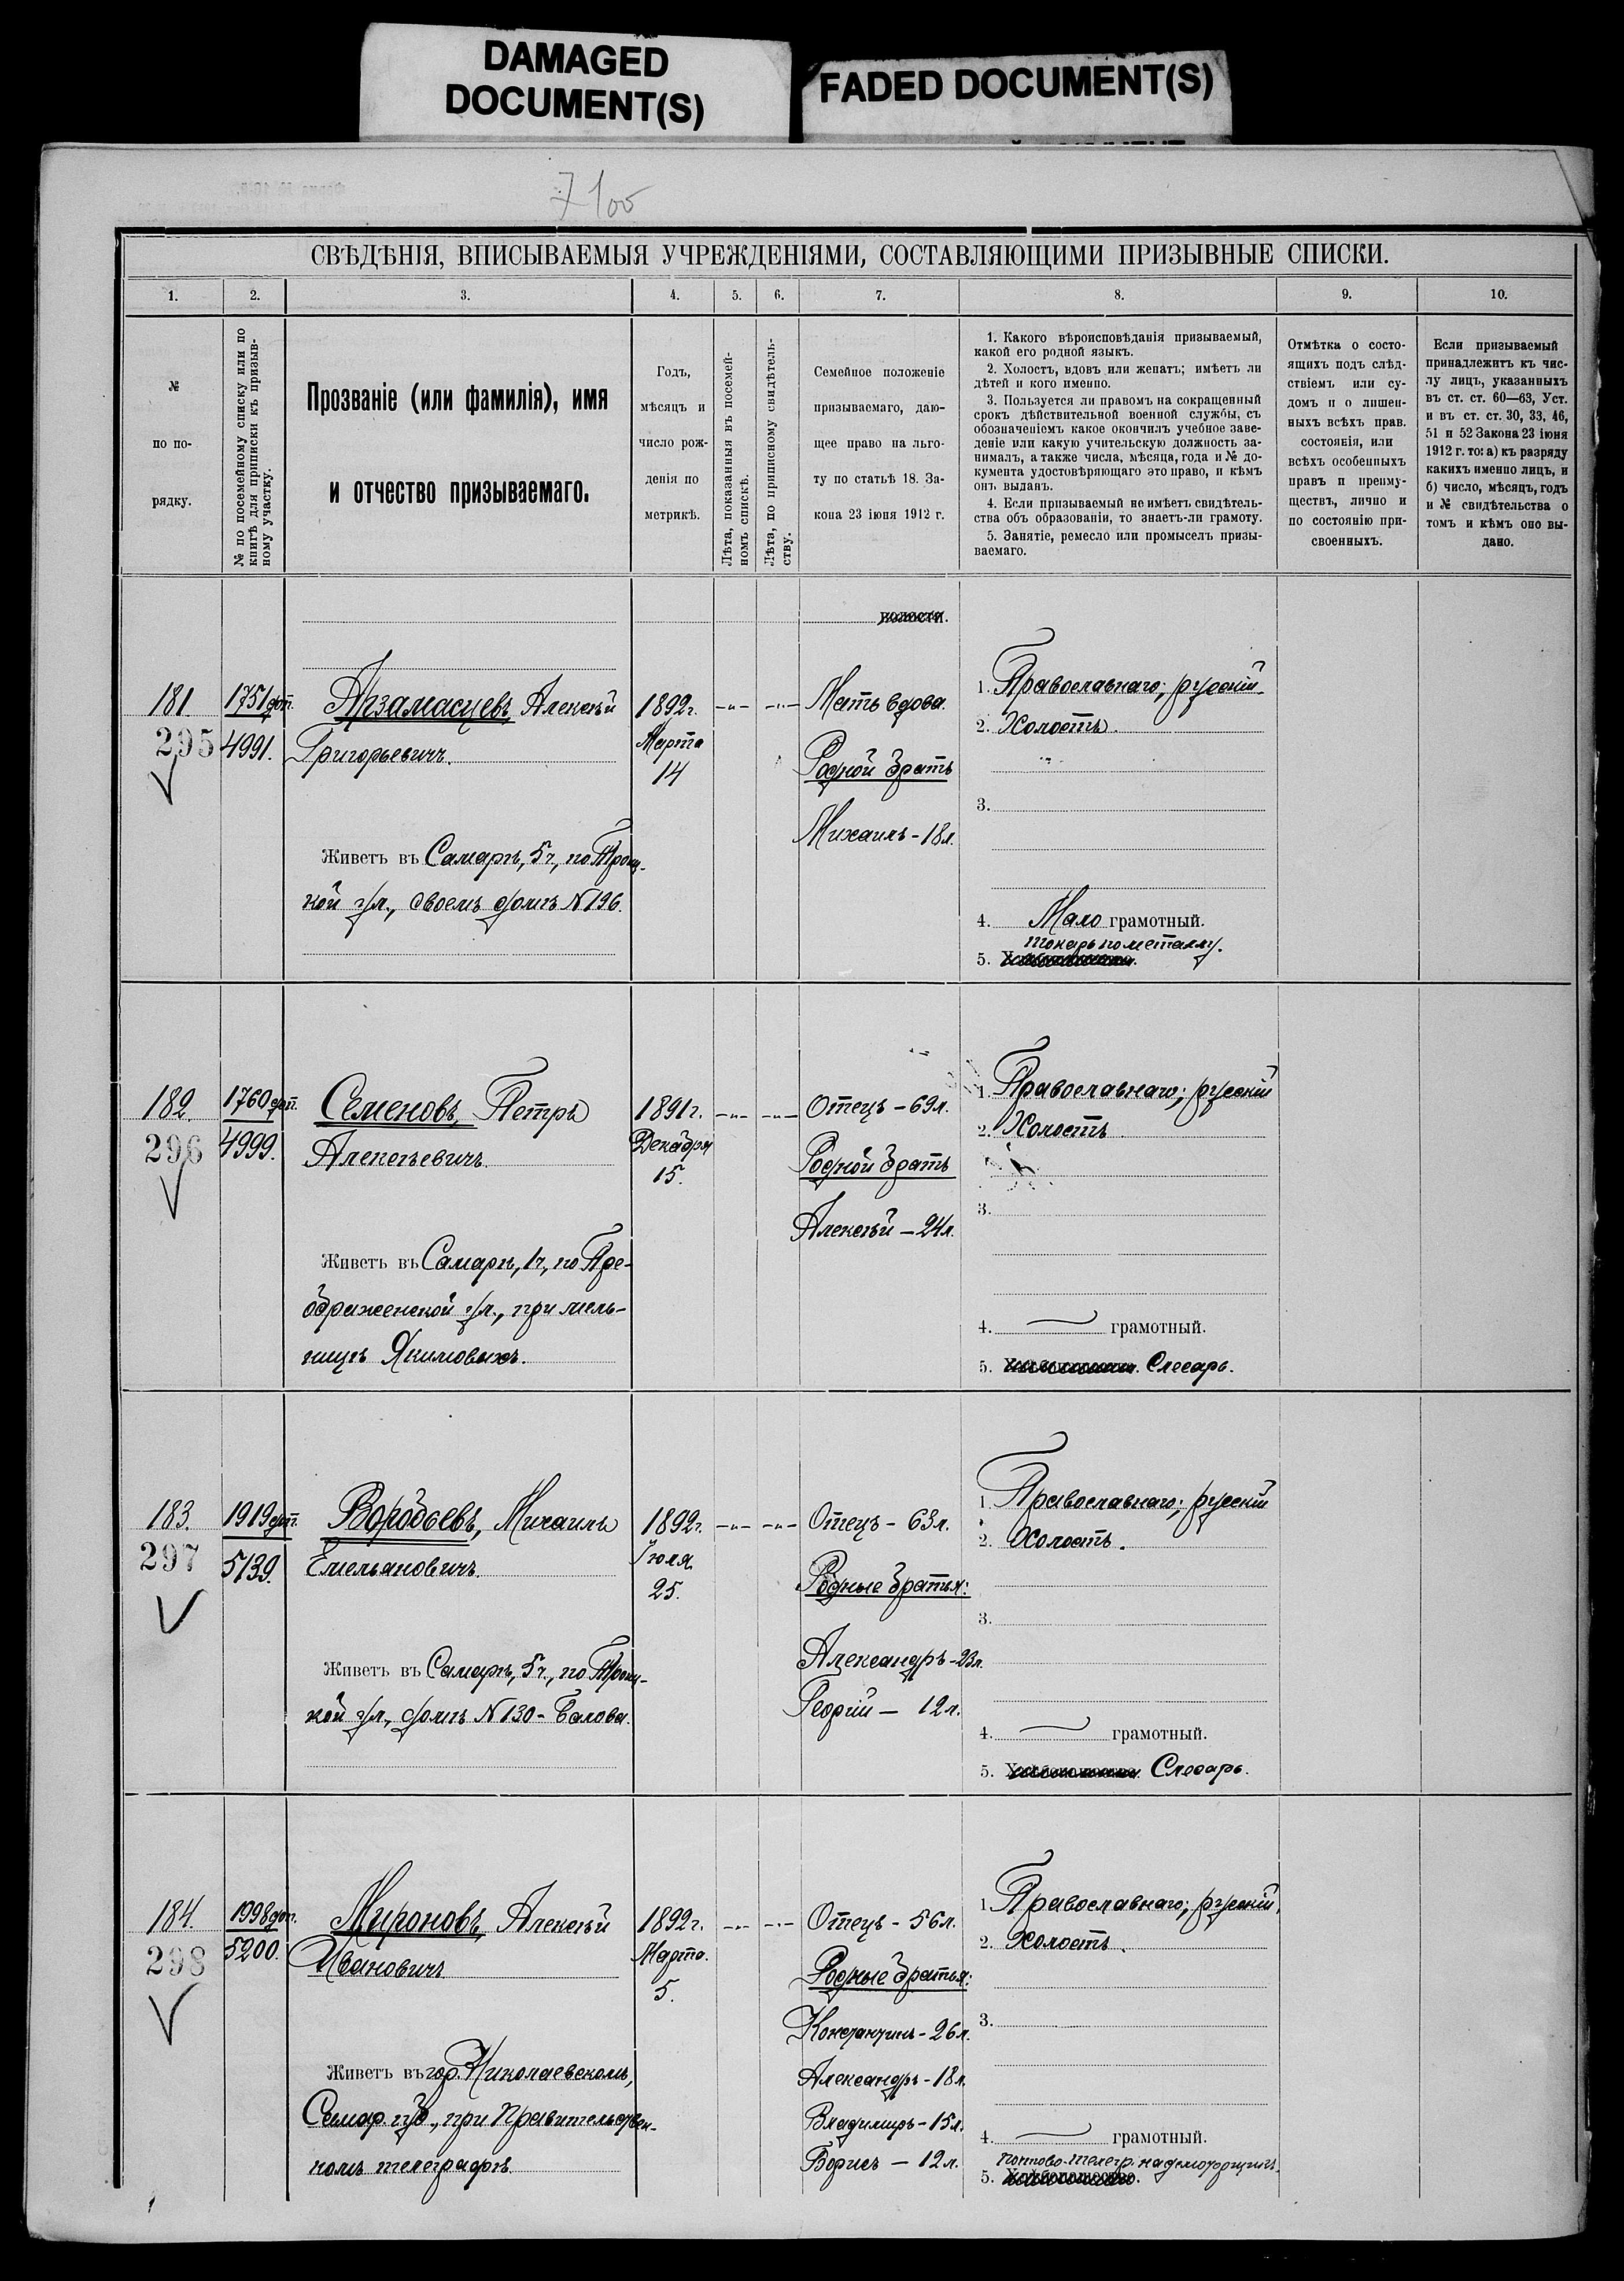 DAMAGED
DOCUMENT(S)
FADED DOCUMENT(S)
7100
СВѢДѢНІЯ, ВПИСЫВАЕМЫЯ УЧРЕЖДЕНІЯМИ, СОСТАВЛЯЮЩИМИ ПРИЗЫВНЫЕ СПИСКИ.
1. 2. 3. 4. 5. 6. 7. 8. 9. 10.
№
по по-
рядку.
№ по посемейному списку или по
книгѣ для приписки къ призыв-
ному участку.
Прозваніе (или фамилія), имя
и отчество призываемаго.
Годъ,
мѣсяцъ и
число рож-
денія по
метрикѣ.
Лѣта, показанныя въ посемей-
номъ спискѣ.
Лѣта, по приписному свидѣтель-
ству.
Семейное положеніе
призываемаго, даю-
щее право на льго-
ту по статьѣ 18. За-
кона 23 іюня 1912 г.
1. Какого вѣроисповѣданія призываемый,
какой его родной языкъ.
2. Холостъ, вдовъ или женатъ; имѣетъ ли
дѣтей и кого именно.
3. Пользуется ли правомъ на сокращенный
срокъ дѣйствительной военной службы, съ
обозначеніемъ какое окончилъ учебное заве-
деніе или какую учительскую должность за-
нималъ, а также числа, мѣсяца, года и № до-
кумента удостовѣряющаго это право, и кѣмъ
онъ выданъ.
4. Если призываемый не имѣетъ свидѣтель-
ства объ образованіи, то знаетъ-ли грамоту.
5. Занятіе, ремесло или промыселъ призы-
ваемаго.
Отмѣтка о состо-
ящихъ подъ слѣд-
ствіемъ или су-
домъ и о лишен-
ныхъ всѣхъ прав.
состоянія, или
всѣхъ особенныхъ
правъ и преиму-
ществъ, лично и
по состоянію при-
своенныхъ.
Если призываемый
принадлежитъ къ чис-
лу лицъ, указанныхъ
въ ст. ст. 60—63, Уст.
и въ ст. ст. 30, 33, 46,
51 и 52 Закона 23 іюня
1912 г. то: а) къ разряду
какихъ именно лицъ, и
б) число, мѣсяцъ, годъ
и № свидѣтельства о
томъ и кѣмъ оно вы-
дано.
волости.
181.
295
1751 доп.
4991.
Арзамасцевъ Алексѣй
Григорьевичъ.
Живетъ въ Самарѣ, 5 ч., по Троиц-
кой ул., своемъ домѣ N 196.
1892 г.
Марта
14
Мать вдова.
Родной братъ
Михаилъ - 18 л.
1. Православнаго; русскій
2. Холостъ.
3.
4. Мало грамотный.
токарь по металлу.
5.
182.
296
1760 доп.
4999.
Семеновъ, Петръ
Алексѣевичъ.
Живетъ въ Самарѣ, 1 ч., по Пре-
ображенской ул., при мель-
ницѣ Якимовыхъ.
1891 г.
Декабря
15.
Отецъ - 69 л.
Родной братъ
Алексѣй - 24 л.
1. Православнаго; русскій
2. Холостъ
3.
4. грамотный.
5. Слесарь.
183.
297
1919 доп.
5139.
Воробьевъ, Михаилъ
Емельяновичъ.
Живетъ въ Самарѣ, 5 ч., по Троиц-
кой ул., домъ N 130 - Балова.
1892 г.
Іюля
25.
Отецъ - 63 л.
Родные братья:
Александръ - 23 л.
Георгій - 12 л.
1. Православнаго; русскій
2. Холостъ.
3.
4. грамотный.
5. Слесарь.
184.
298
1998 доп.
5200.
Мироновъ, Алексѣй
Ивановичъ
Живетъ въ гор. Николаевскомъ,
Самар. губ., при Правительствен-
номъ телеграфѣ
1892 г.
Марта.
5.
Отецъ - 56 л.
Родные братья:
Константинъ - 26 л.
Александръ - 18 л.
Владимиръ - 15 л.
Борисъ - 12 л.
1. Православнаго; русскій,
2. Холостъ.
3.
4. грамотный.
почтово-телегр. надсмотрщикъ.
5. Хлѣбопашество.